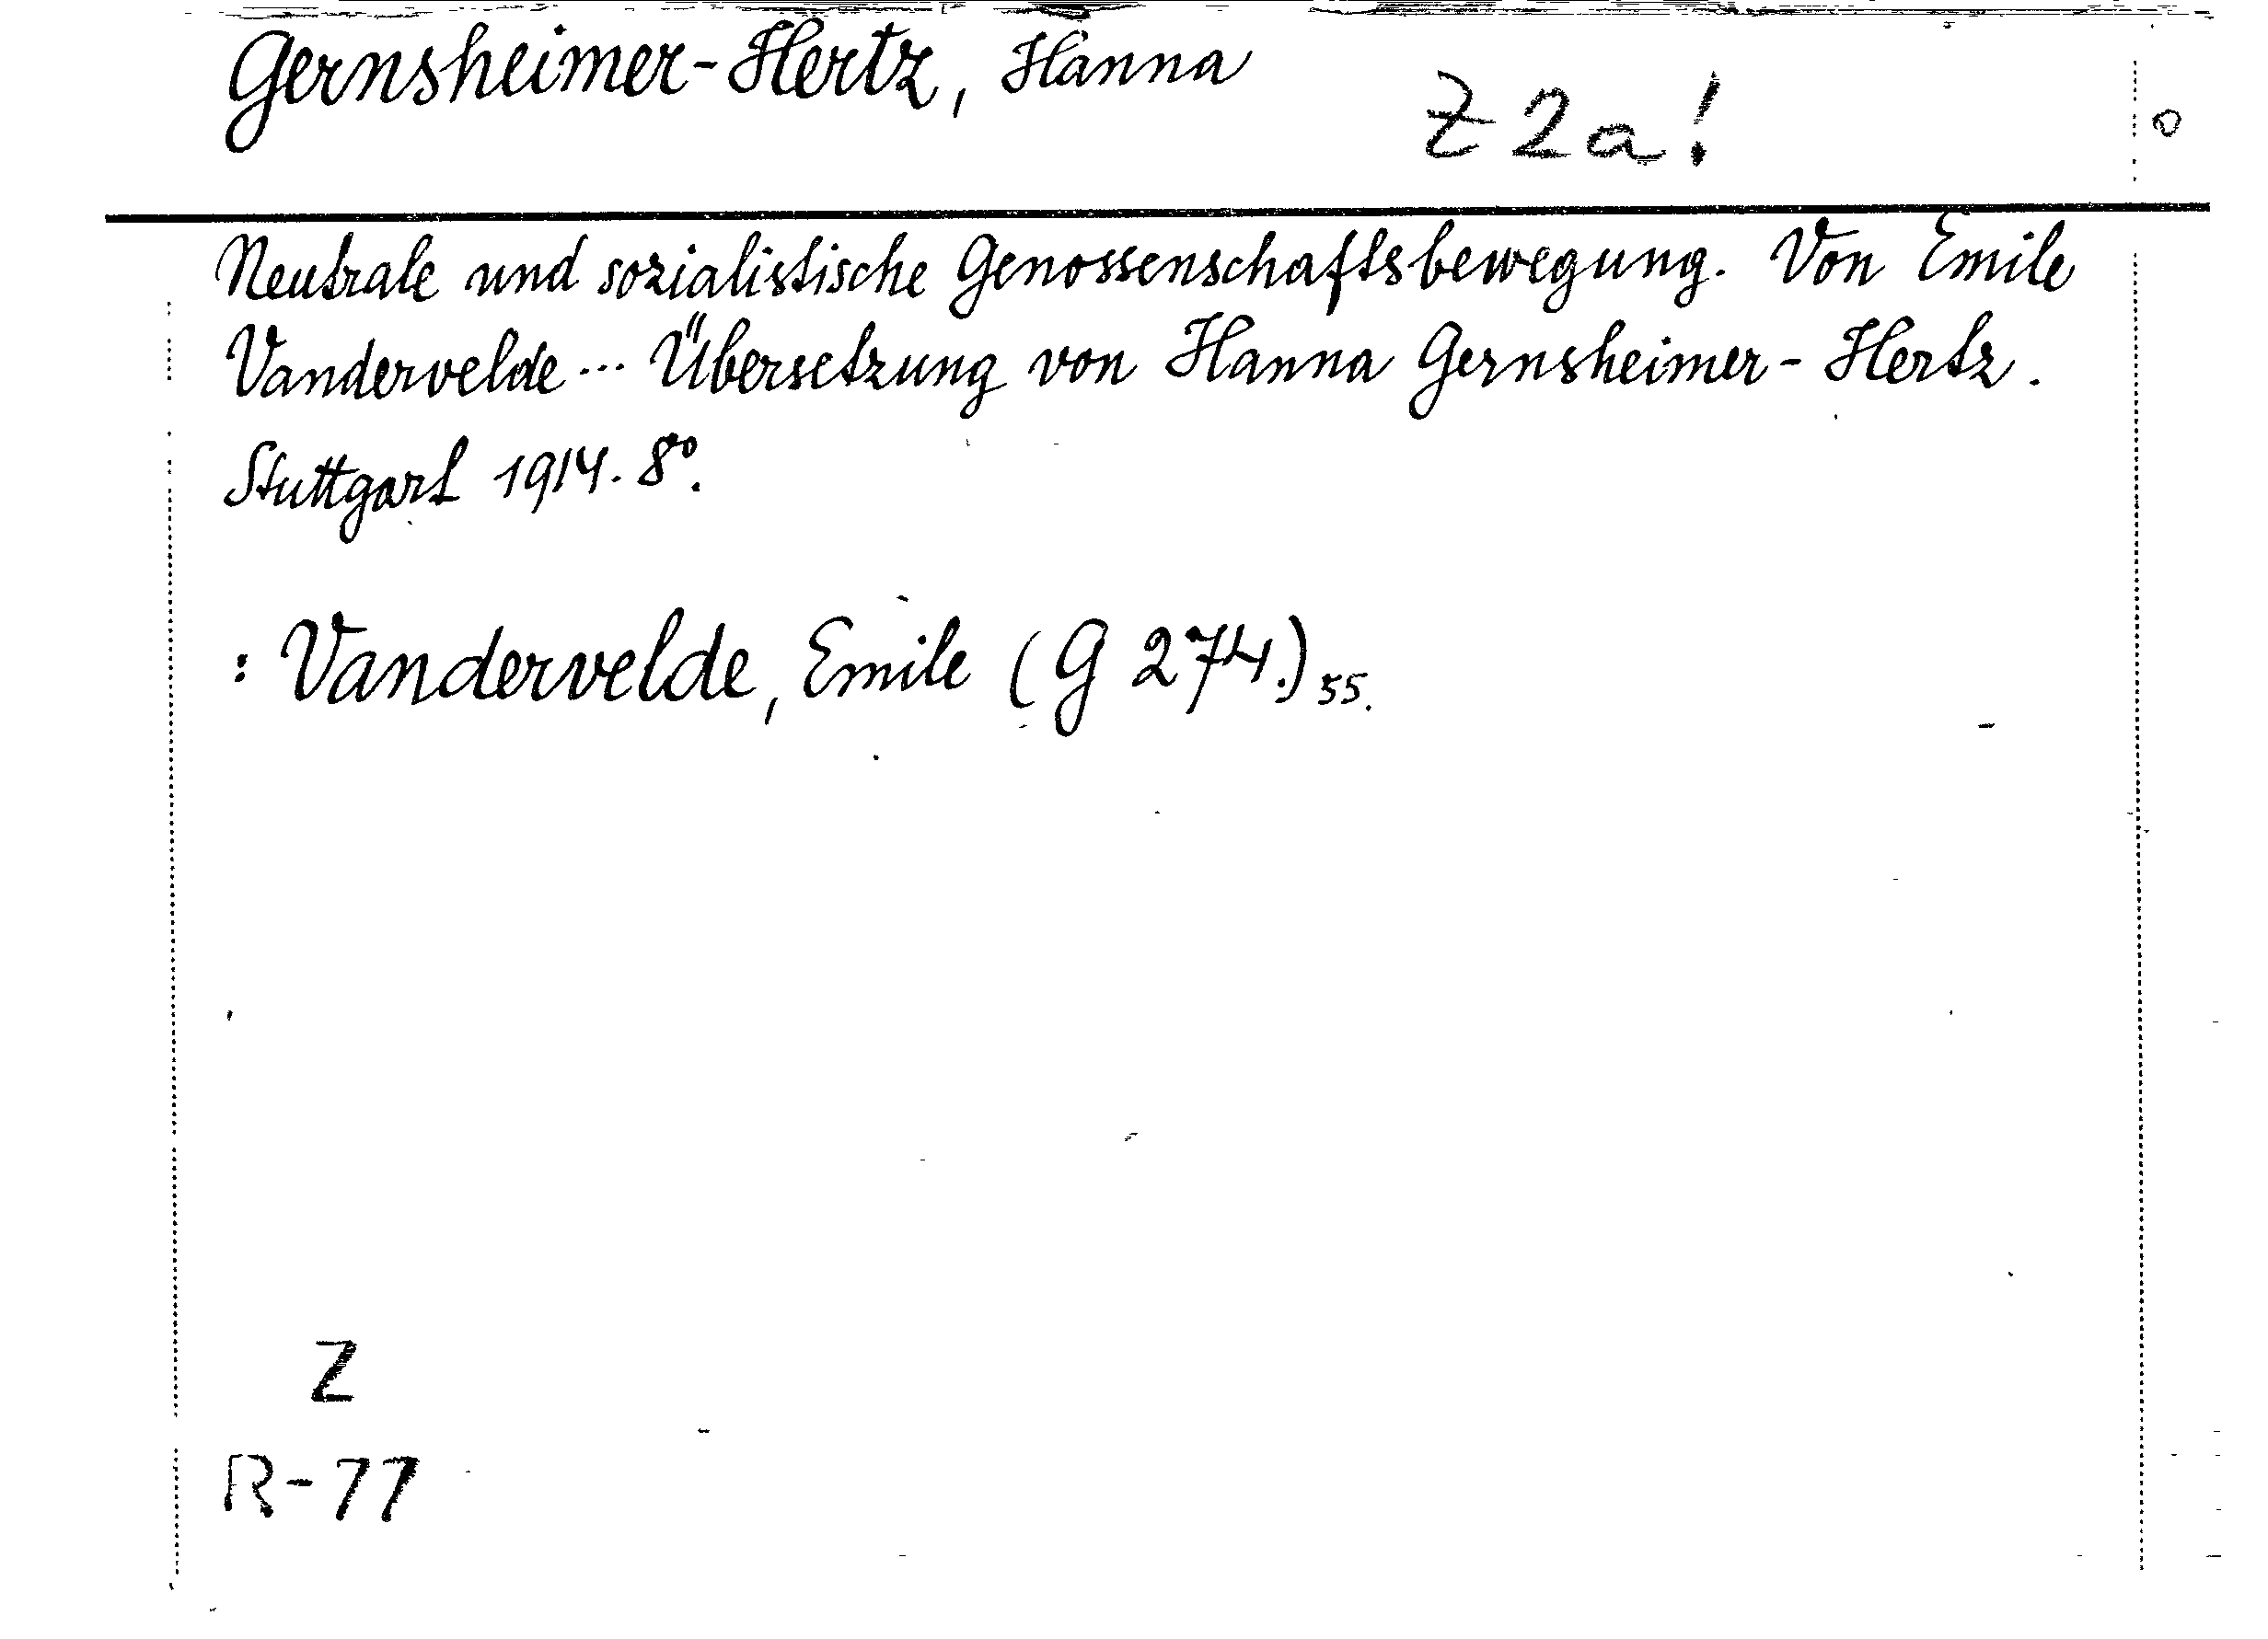 Gernsheimer-Hertz, Hanna
Z 2a!
Neutrale und sozialistische Genossenschaftsbewegung. Von Emile
Vandervelde... Übersetzung von Hanna Gernsheimer-Hertz.
Stuttgart 1914. 8°.
: Vandervelde, Emile (G 274.) 55.
Z
R-77